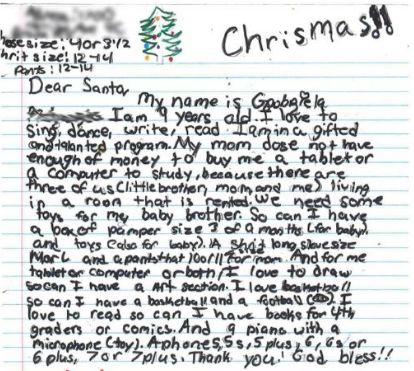 Chrismas!!
hoesize: 4 or 3 1/2
hrit size: 12-14
Pants: 12-14
Dear Santa,
My name is
I am 9 years old. I love to
sing, dance, write, read I am in a gifted
and talanted program. My mom dose not have
enough of money to buy me a tablet or
a computer to study, because there are
three of us (little brother, mom and me) living
in a room that is rented. We need some
toys for my baby brother. So can I have
a box of pamper size 3 of 9 months (for baby).
and toys (also for baby). A shirt long slave size
M or L and a pants that for mom. And for me
tablet or computer or both, I love to draw
so can I have a art section. I love basketball
so can I have a basketball and a football. I
love to read so can I have books for 4th
graders or comics. And a piano with a
microphone (toy). A phone 5, 5s, 5 plus, 6, 6s or
6 plus, 7 or 7 plus. Thank you! God bless!!